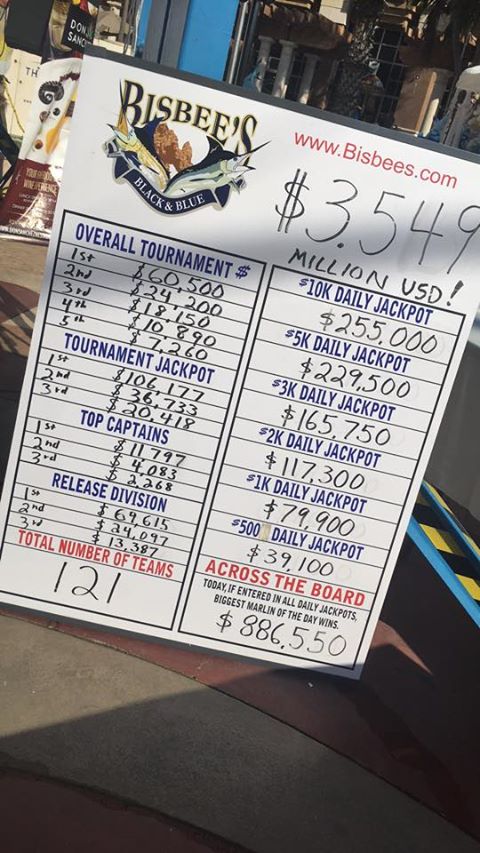 DON
SANCH
TH
YOUR
WINE
BISBEE'S
BLACK & BLUE
www.Bisbees.com
$3.549
MILLION USD!
OVERALL TOURNAMENT $
1st $60,500
2nd $24,200
3rd $18,150
4th $10,890
5th $7,260
TOURNAMENT JACKPOT
1st $106,177
2nd $36,733
3rd $20,418
TOP CAPTAINS
1st $11,797
2nd $4,083
3rd $2,268
RELEASE DIVISION
1st $69,615
2nd $24,097
3rd $13,387
TOTAL NUMBER OF TEAMS
121
$10K DAILY JACKPOT
$255,000
$5K DAILY JACKPOT
$229,500
$3K DAILY JACKPOT
$165,750
$2K DAILY JACKPOT
$117,300
$1K DAILY JACKPOT
$79,900
$500 DAILY JACKPOT
$39,100
ACROSS THE BOARD
TODAY, IF ENTERED IN ALL DAILY JACKPOTS,
BIGGEST MARLIN OF THE DAY WINS.
$886,550